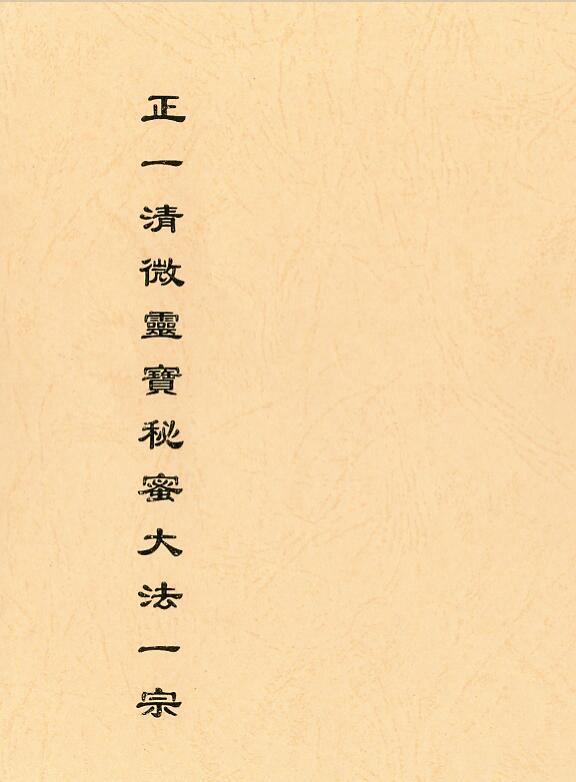 正一清微靈寶秘蜜大法一宗